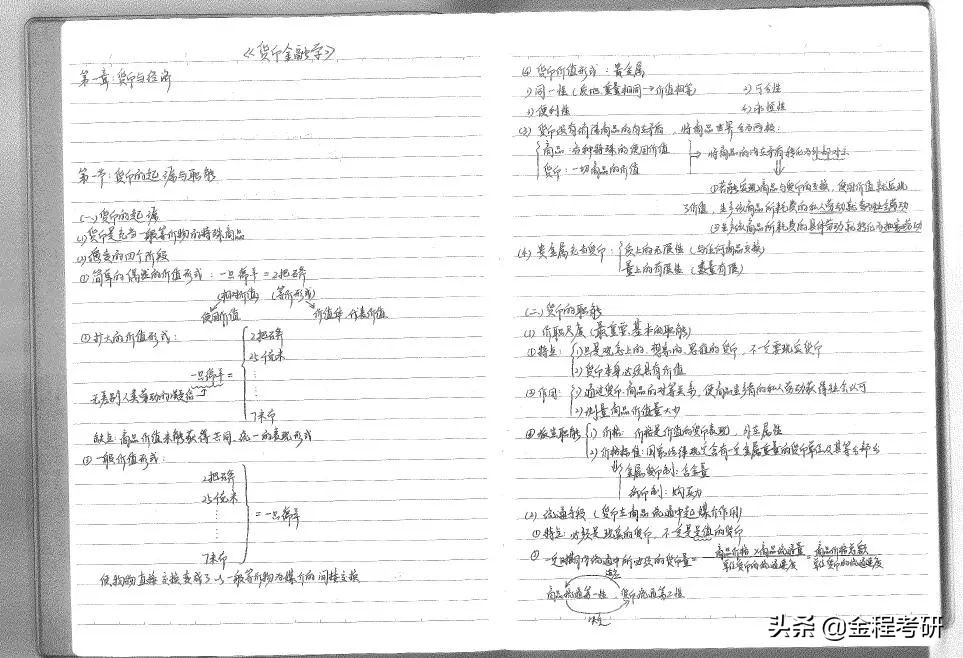 《货币金融学》
第一章：货币与经济
第一节：货币的起源与职能
(一)货币的起源
(1)货币是充当一般等价物的特殊商品
(2)演变的四个阶段
①简单的偶然的价值形式：一只绵羊=2把石斧
(相对价值) (等价形式)
使用价值 价值
②扩大的价值形式：
2把石斧
一只绵羊=
无差别人类劳动的凝结
7米布
缺点：商品价值未能获得共同、统一的表现形式
③一般价值形式：
2把石斧
=一只绵羊
7米布
使物物直接交换变成了以一般等价物为媒介的间接交换
④货币价值形式：贵金属
1)同一性(质地、重量相同→价值相等) 2)可分性
3)便利性 4)永恒性
(3)货币没有消除商品的内在矛盾，将商品世界分为两极：
商品：各种特殊的使用价值
货币：一切商品的价值
⇒将商品的内在矛盾转化为外部对立
①若能实现商品与货币的交换，使用价值就
了价值，生产该商品所耗费的私人劳动就
②生产该商品所耗费的具体劳动就转化为抽象劳动
(4)贵金属充当货币：质上的无限性(与任何商品交换)
量上的有限性(数量有限)
(二)货币的职能
(1)价值尺度(最重要、基本的职能)
①特点：1)只是观念上的、想象的、思维的货币，不一定要现实货币
2)货币本身必须具有价值
②作用：1)通过货币、商品的对等关系，使商品生产者的私人劳动获得社会认可
2)测量商品价值量大小
1)价格：价格是价值的货币表现
2)价格标准：国家法律规定含有一定金属重量的货币单位及其等分部分
金属货币制：含金量
纸币制：购买力
(2)流通手段(货币在商品流通中起媒介作用)
①特点：必须是现实的货币，不一定是足值的货币
②一定时期内流通中所必须的货币量=商品价格×商品流通量/单位货币的流通速度=商品价格总额/单位货币的流通速度
商品流通第一性 货币流通第二性
头条 @金程考研